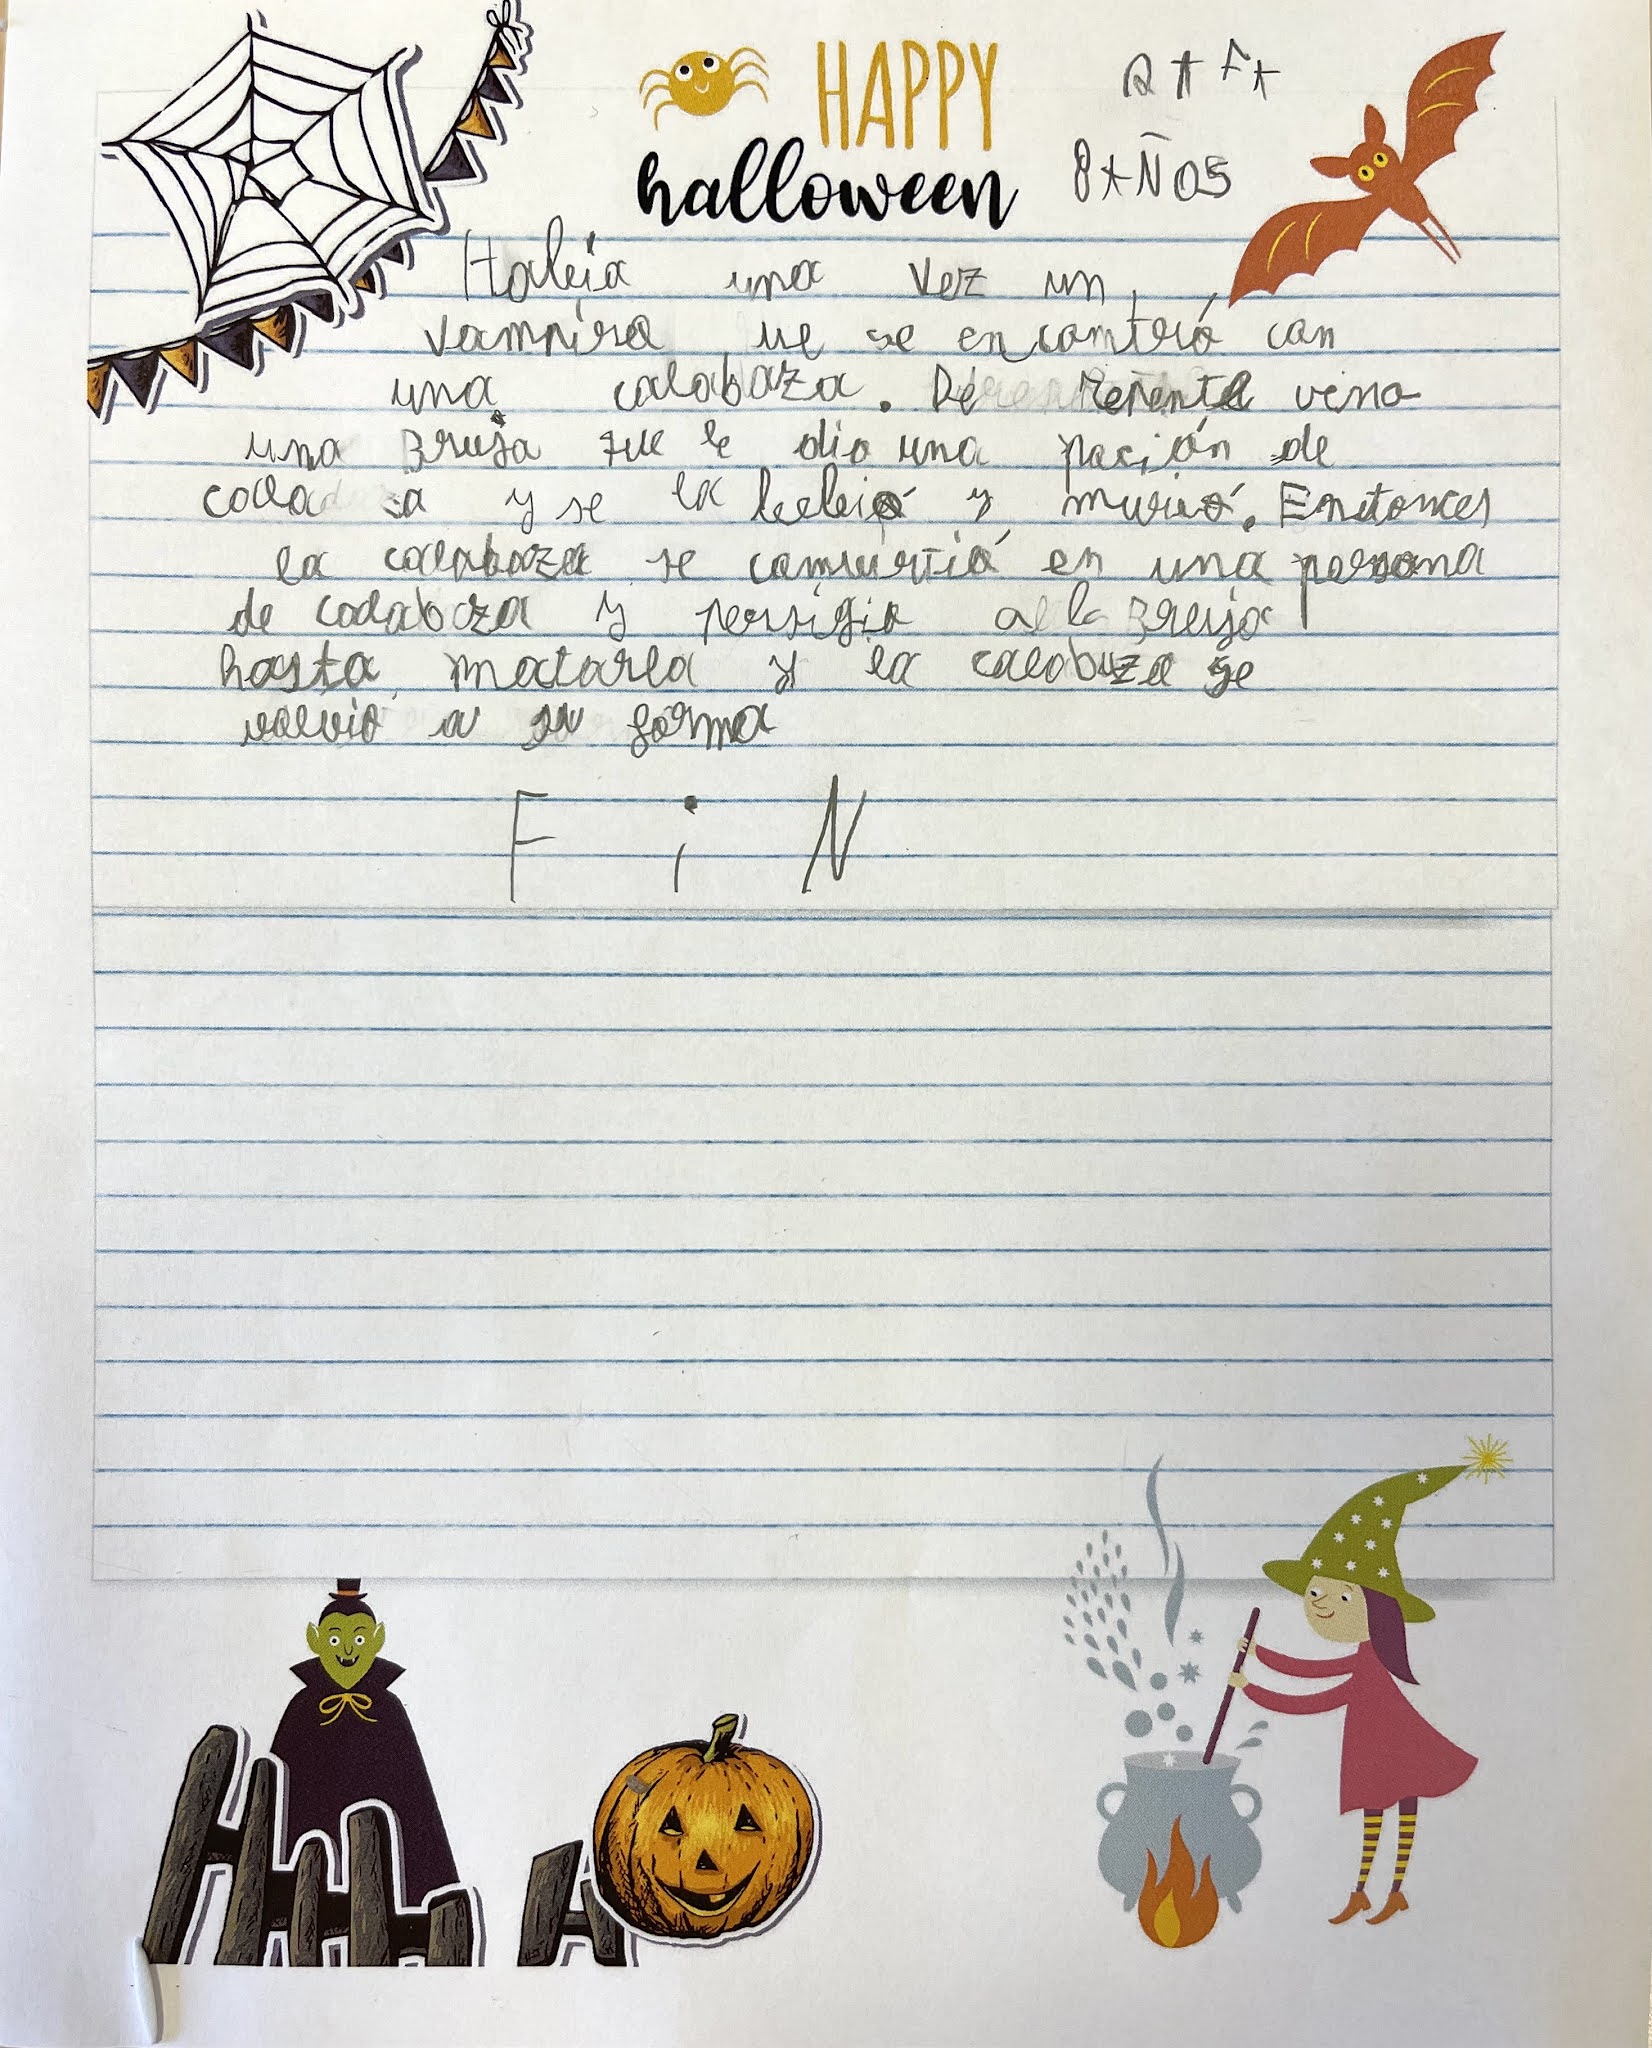 HAPPY
halloween
RAFA
8 AÑOS
Había una vez un
vampiro ue se encontró con
una calabaza. De repente vino
una Bruja que le dio una poción de
y se la bebió y murió. Enctonces
la calabaza se convirtió en una persona
de calabaza y persigio a la Bruja
hasta matarla y la calabaza se
volvió a su forma
FiN